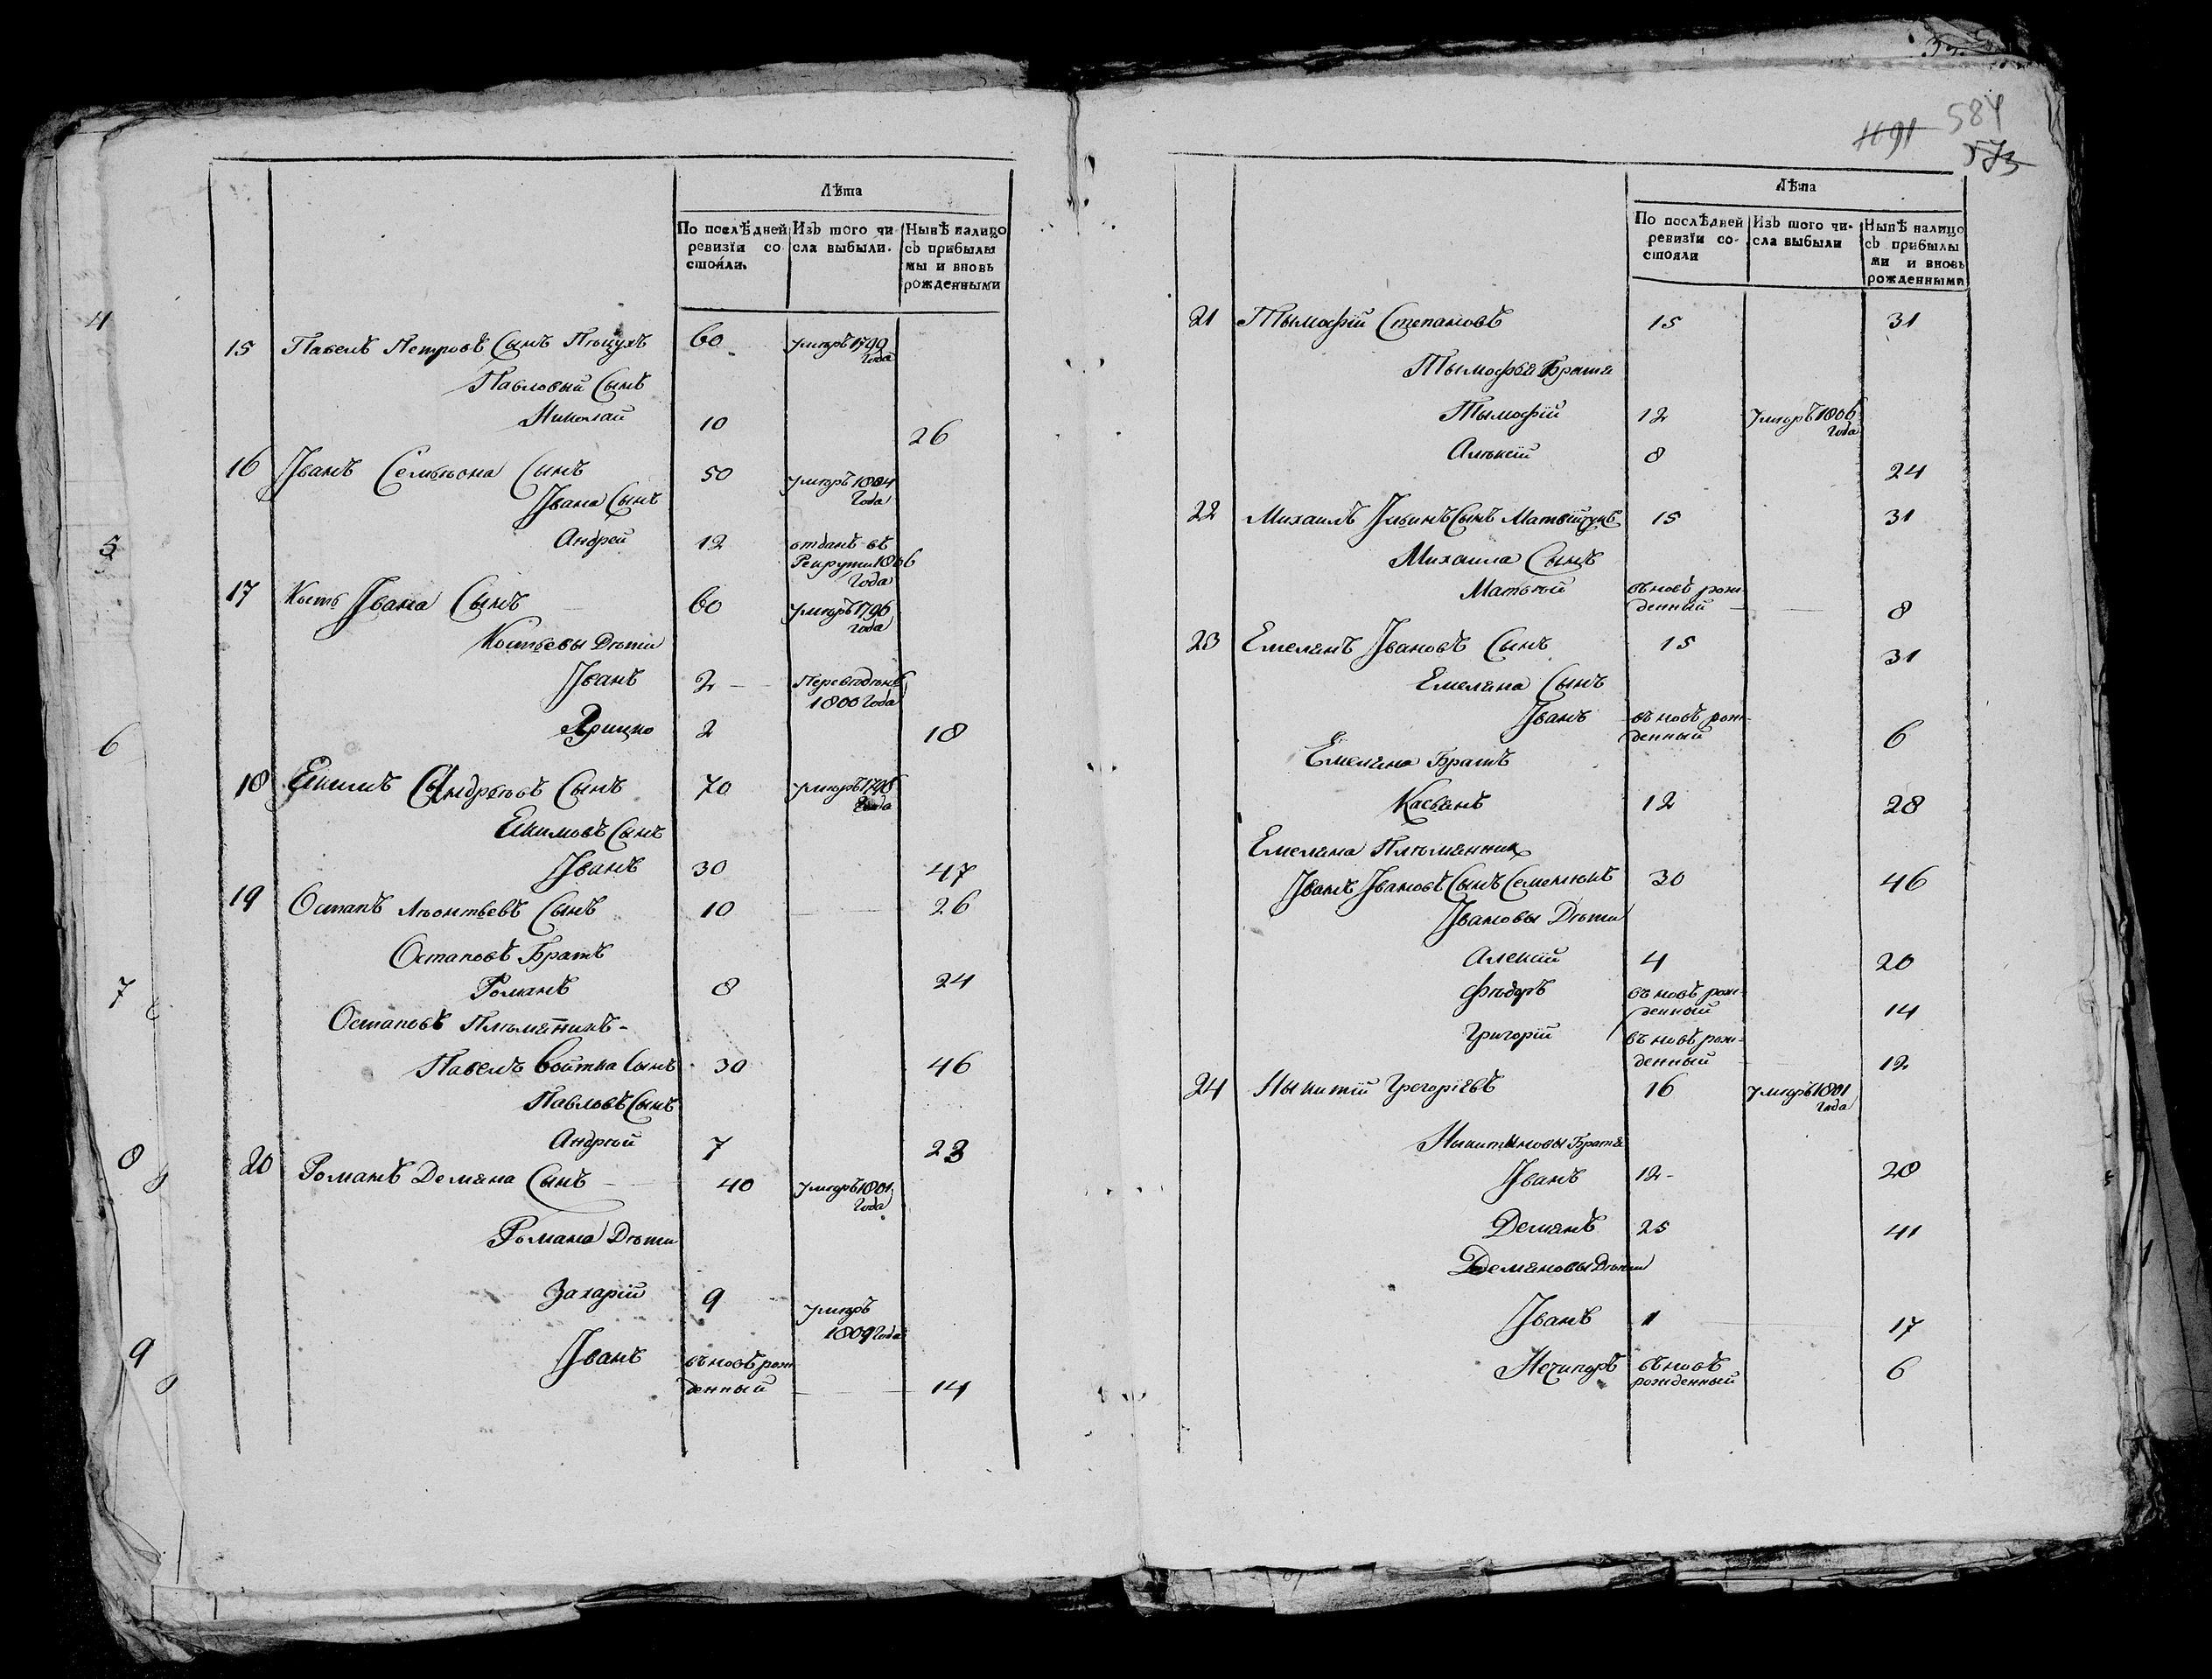 4
5
6
7
8
9
Лѣта
По послѣдней ревизїи со стояли. Изъ того чи сла выбыли. Нынѣ налицо съ прибылы мы и вновь рожденными
15 Павелъ Петровъ Сынъ 60 умеръ 1799 Года
Павловый Сынъ
Николай 10 26
16 Іванъ Семыона Сынъ 50 умеръ 1804 Года
Івана Сынъ
Андрей 12 отданъ въ Рекруты 1806 Года
17 Кость Івана Сынъ 60 умеръ 1796 Года
Костьевы Дѣти
Іванъ 2 Переведѣнъ 1800 Года
Грицко 2 18
18 Екимъ Андрѣевъ Сынъ 70 умеръ 1798 Года
Екимовъ Сынъ
Іванъ 30 47
19 Остапъ Лѣонтьевъ Сынъ 10 26
Остаповъ Братъ
Романъ 8 24
Остаповъ Плѣмянникъ
Павелъ Войтка Сынъ 30 46
Павловъ Сынъ
Андрѣй 7 23
20 Романъ Демяна Сынъ 40 умеръ 1801 Года
Романа Дѣти
Захарій 9 умеръ 1809 Года
Іванъ въновъ рож денный 14
1691 584
573
Лѣта
По послѣдней ревизїи со- стояли Изъ того чи- сла выбыли Нынѣ налицо съ прибылы ми и вновь рожденными
21 Тымофій Степановъ 15 31
Тымофѣя Братя
Тымофій 12 умеръ 1806 Года
Алѣксій 8 24
22 Михаилъ Ільинъ Сынъ 15 31
Михаила Сынъ
Матвѣй въновъ рож денный 8
23 Емелянъ Івановъ Сынъ 15 31
Емеляна Сынъ
Іванъ въновъ рож- денный 6
Емеляна Братъ
Касьянъ 12 28
Емеляна Плѣмянник
Іванъ Івановъ Сынъ Семенюкъ 30 46
Івановы Дѣти
Алексій 4 20
Фѣдоръ въновъ рож- денный 14
Григорій въновъ рож- денный 12
24 Ныкитій Грегоріевъ 16 умеръ 1801 Года
Никитыновы Братя
Іванъ 12 28
Демянъ 25 41
Демяновы Дѣти
Іванъ 1 17
Нечипоръ въновъ рожденный 6